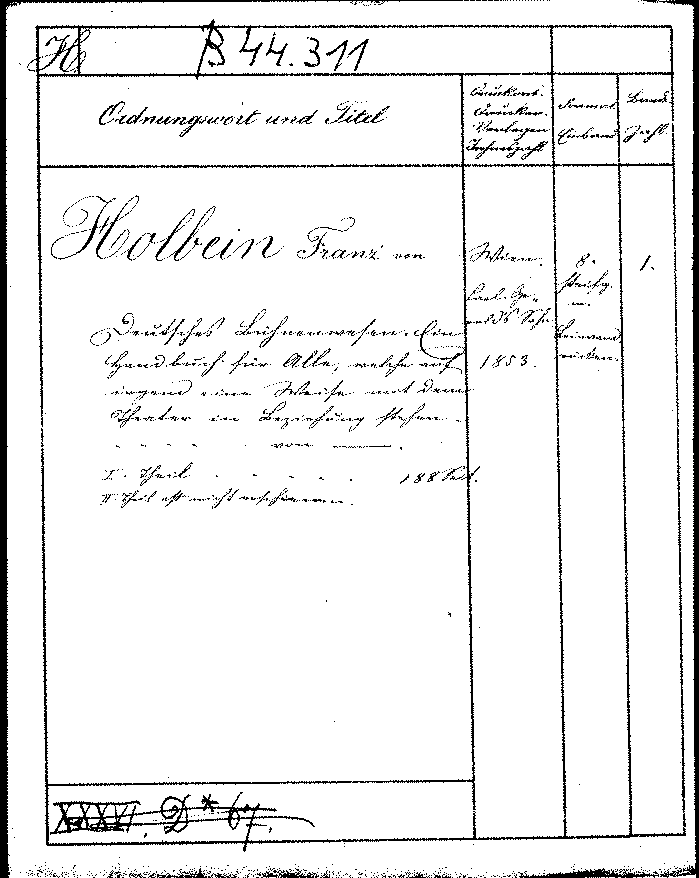 H B 44.311
Ordnungswort und Titel
Druckort.
Drucker.
Verleger
Jahreszahl
Format
Einband
Band-
Zahl.
Holbein Franz von
Deutsches Bühnenwesen. Ein
Handbuch für Alle, welche auf
irgend eine Weise mit dem
Theater in Beziehung stehen.
- - - - von ——.
I. Theil - - - - - 188 Seit.
II. Theil ist nicht erschienen.
Wien.
Carl Ge-
rold's Sohn
1853.
8.
steifg.
m.
Leinwand
rücken.
1.
XXXVI. D * 67.